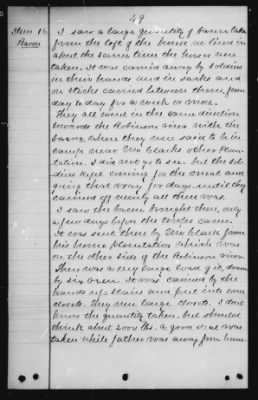 49
Item 16. I saw a large quantity of bacon taken
Bacon from the loft of the house we lived in
about the same time the horses were
taken. It was carried away by soldiers
in their hands and in sacks and
on sticks carried between them, from
day to day for a week or more.
They all went in the same direction
towards the Robinson river with the
bacon, where they were said to be in
camp near Wm Clark's other Plan-
tation. I did not go to see but the sol-
diers kept coming for the meat and
going that way for days until they
carried off nearly all there was.
I saw the bacon brought there, only
a few days before the troops came.
It was sent there by Wm Clark from
his home plantation which was
on the other side of the Robinson river.
There was a very large load of it, drawn
by six oxen. It was carried by the
hands up stairs and put into some
closets. They were large closets. I dont
know the quantity taken, but should
think about 2000 lbs. A good deal was
taken while father was away from home.